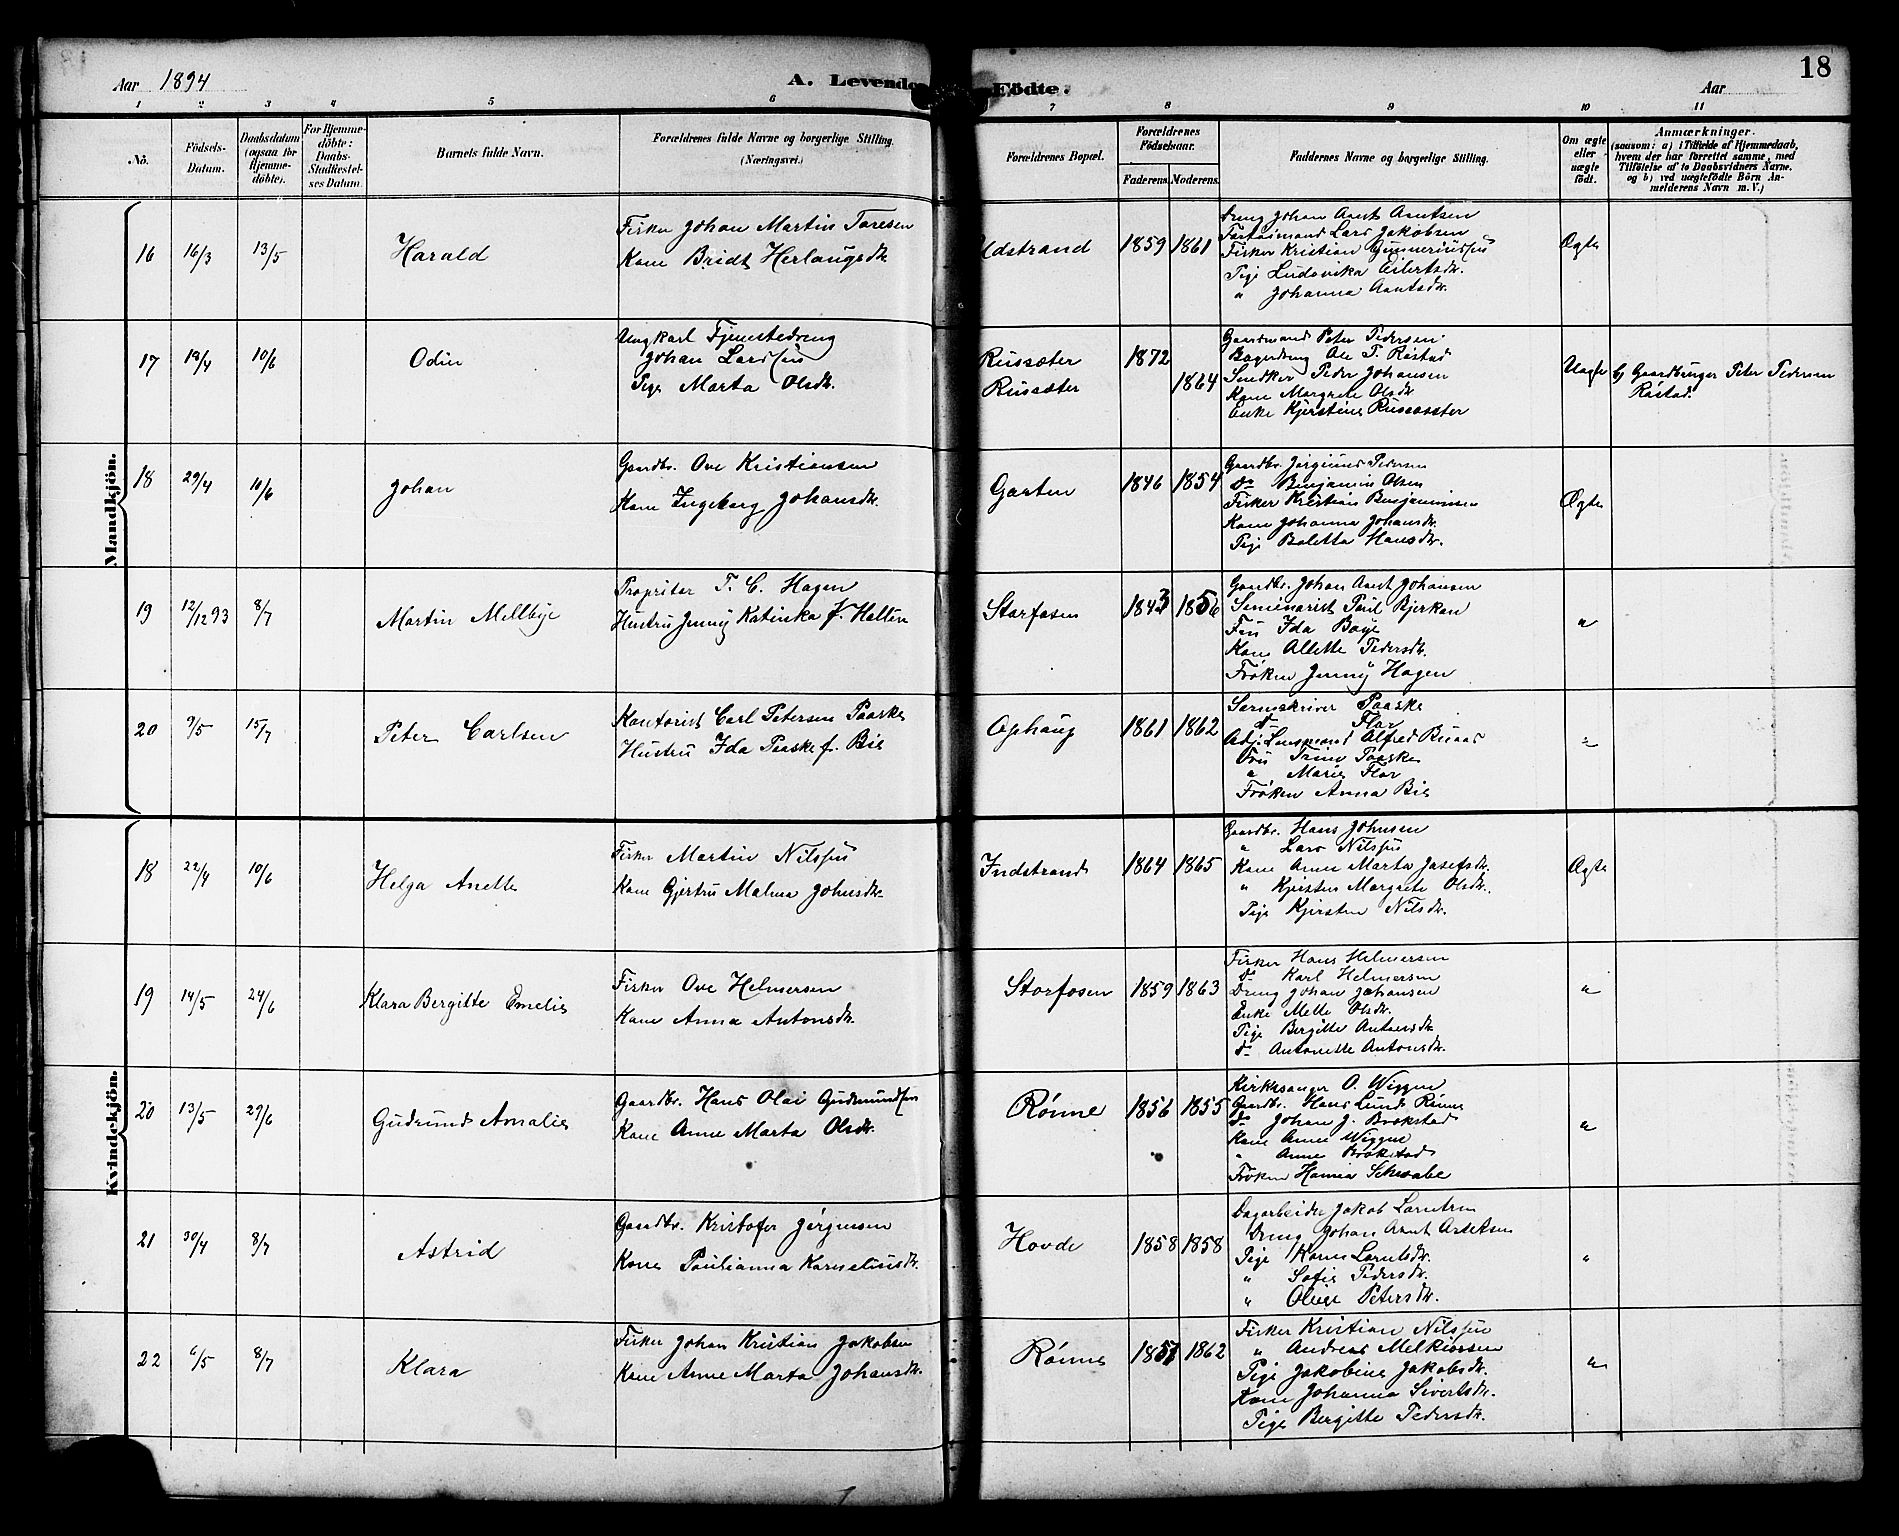 Aar 1894
A. Levende Födte.
Aar
18
1 2 3 4 5 6 7 8 9 10 11
No.
Födsels-Datum.
Daabsdatum (ogsaa for Hjemme-döbte).
For Hjemme-döbte: Daabs-Stadfestel-ses Datum.
Barnets fulde Navn.
Forældrenes fulde Navne og borgerlige Stilling. (Næringsvei.)
Forældrenes Bopæl.
Forældrenes Födselsaar.
Faderens. Moderens.
Faddernes Navne og borgerlige Stilling.
Om ægte eller uægte födt.
Anmærkninger.
(saasom: a) i Tilfælde af Hjemmedaab, hvem der har forrettet samme, med Tilföielse af to Daabsvidners Navne, og b) ved uægtefödte Börn An-melderens Navn m. V.)
Mandkjön.
16 16/3 13/5 Harald
Fisker Johan Martin Toresen
Kone Bridt Herlaugsdt.
Udstrand 1859 1861
Dreng Johan Arnt Arntsen
Lars Jakobsen
Fisker Kristian Gunneriussen
Pige Ludovika Eilertsdt.
" Johanna Arntsdt.
Ægte
17 19/4 10/6 Odin
Ungkarl Tjenestedreng
Johan Larssen
Pige Marta Olsdt.
Russæter 1872
Russæter 1864
Gaardmand Peter Pedersen
Ole T. Røstad
Snedker Peder Johansen
Kone Margrete Olsdt.
Enke Kjerstine Russæter
Uægte
b) Gaardbruger Peter Pedersen Røstad.
18 29/4 10/6 Johan
Gaardbr. Ove Kristiansen
Kone Ingeborg Johansdt.
Garten 1846 1854
Gaardbr. Jørginus Pedersen
Do Benjamin Olsen
Fisker Kristian Benjaminsen
Kone Johanna Johansdt.
Pige Baletta Hansdt.
Ægte
19 12/12 93 8/7 Martin Mellbye
Propritær T. C. Hagen
Hustru Jenny Katinka f. Holten
Storfosen 1843 1856
Gaardbr. Johan Arnt Johansen
Seminarist Paul Bjerkan
Fru Ida Boye
Kone Allette Pedersdt.
Frøken Jenny Hagen
"
20 9/5 15/7 Peter Carlsen
Kontorist Carl Petersen Paaske
Hustru Ida Paaske f. Bie
Ophaug 1861 1862
Sorenskriver Paaske
do Flor
Adj. Lensmand Alfred
Fru Trine Paaske
" Marie Flor
Frøken Anna Bie
"
Kvindekjön.
18 22/4 10/6 Helga Anette
Fisker Martin Nilssen
Kone Gjertru Malena Johnsdt.
Indstrand 1864 1865
Gaardbr. Hans Johnsen
" Lars Nilssen
Kone Anne Marta Josefsdt.
" Kjersten Margrete Olsdt.
Pige Kjersten Nilsdt.
Ægte
19 14/5 24/6 Klara Bergitte Emelie
Fisker Ove Helmersen
Kone Anna Antonsdt.
Storfosen 1859 1863
Fisker Hans Helmersen
do Karl Helmersen
Dreng Johan Johansen
Enke Mette Olsdt.
Pige Bergitte Antonsdt.
do Antonette Antonsdt.
"
20 13/5 29/6 Gudrund Amalie
Gaardbr. Hans Olai Gudmundsen
Kone Anne Marta Olsdt.
Rønne 1856 1855
Kirkesanger O. Wiggen
Gaardbr. Hans Lund Rønne
do Johan J. Brøkstad
Kone Anne Wiggen
" Anne Brøkstad
Frøken Hanna Schwabe
"
21 30/4 8/7 Astrid
Gaardbr. Kristofer Jørgensen
Kone Paulianna Korneliusdt.
Hovde 1858 1858
Dagarbeider Jakob Lorntsen
Dreng Johan Arnt
Pige Karen Lorntsdt.
" Sofie Pedersdt.
" Oline Petersdt.
"
22 6/5 8/7 Klara
Fisker Johan Kristian Jakobsen
Kone Anne Marta Johansdt.
Rønne 1857 1862
Fisker Kristian Nilssen
" Andreas Melkiorsen
Pige Jakobine Jakobsdt.
Kone Johanna Sivertsdt.
Pige Bergitte Pedersdt.
"